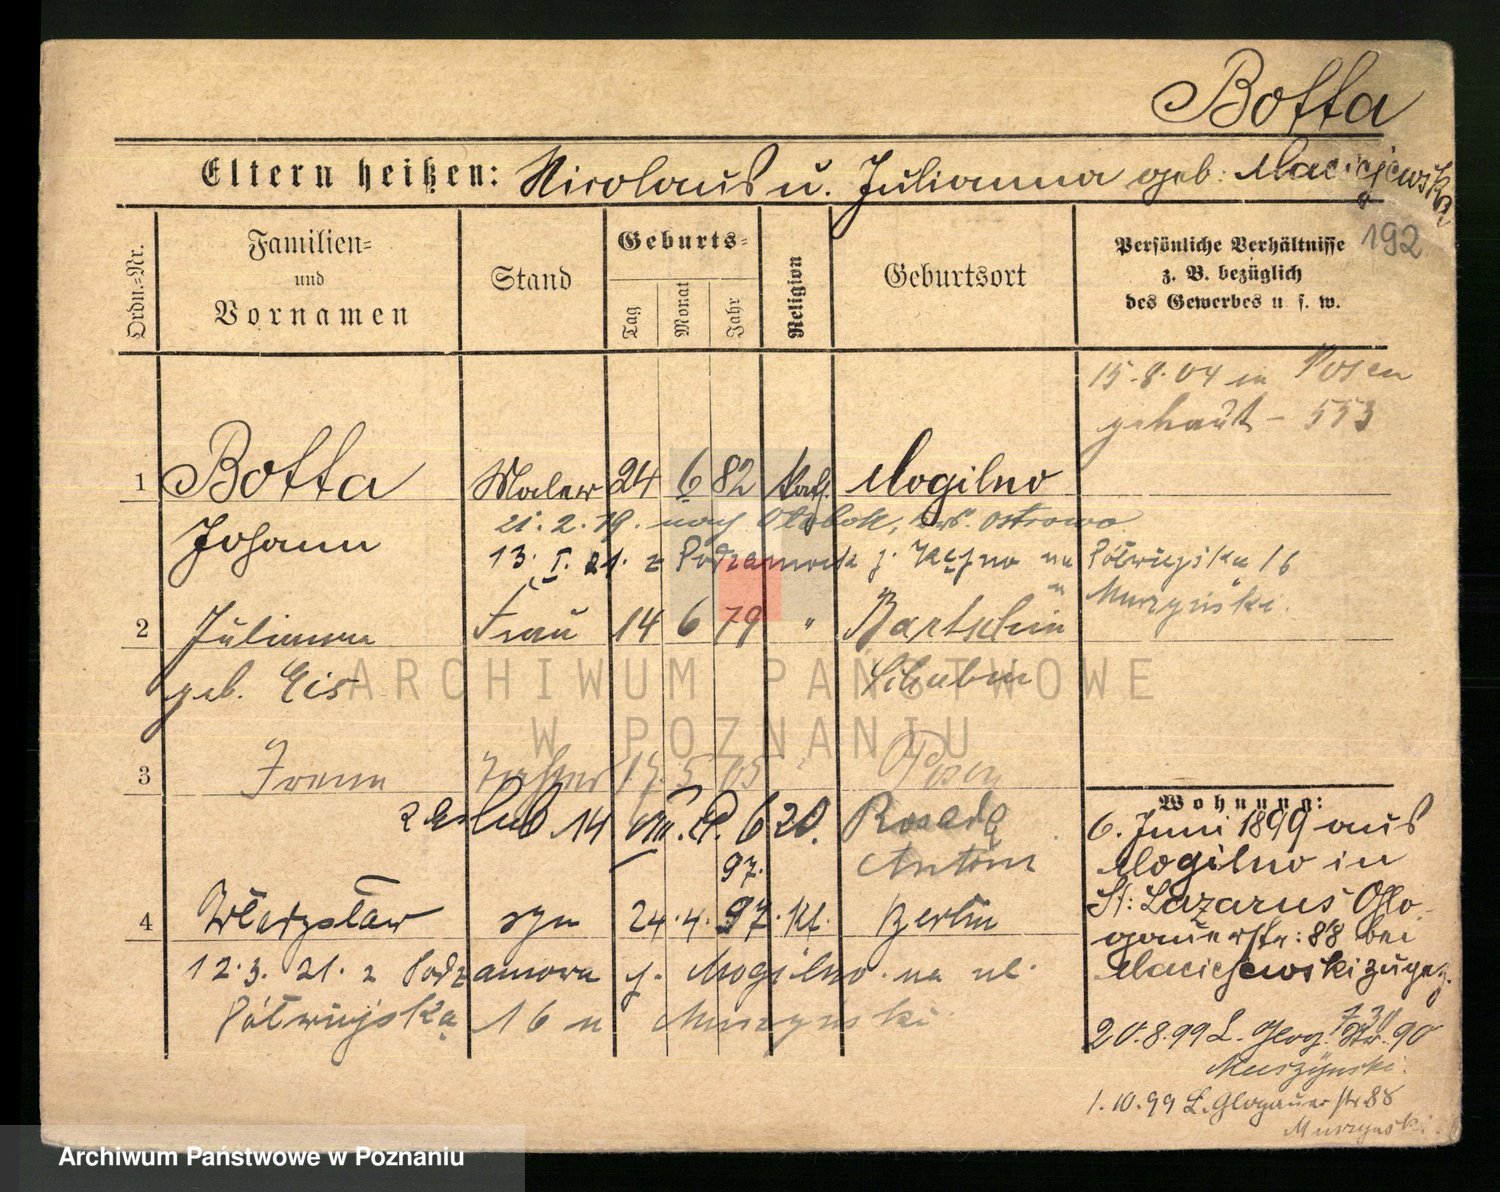 Botta
Eltern heißen: Nicolaus u. Julianna geb. Maciejewska
192
Ordn.-Nr.
Familien-
und
Vornamen
Stand
Geburts-
Tag
Monat
Jahr
Religion
Geburtsort
Persönliche Verhältnisse
z. B. bezüglich
des Gewerbes u. s. w.
15.8.04 in Posen
getraut - 553
1 Botta Maler 24 6 82 Kath. Mogilno
Johann
21. 2. 19. nach Olobok, Krs. Ostrowo
13. I. 21. z Podzamcze p. Kępno na Półwiejska 16
u Muszyński.
2 Julianna Frau 14 6 79 " Bartschin
geb. Eis Schubin
3 Irena Tochter 17 5 05 Posen
2 Eslub 14 VIII. 20. Rosada
97. Antoni
4 Władysław syn 24. 4. 97. kt. Berlin
12. 3. 21. z Podzamcza p. Mogilno na ul.
Półwiejska 16 u Muszyński
Wohnung:
6. Juni 1899 aus
Mogilno in
St: Lazarus Glo-
gauerstr: 88 bei
Maciejewski zugez.
20.8.99 L. Glog. Str. 90
Muszyński.
1.10.99 L. Glogauerstr 88
Muszyński.
ARCHIWUM PAŃSTWOWE
W POZNANIU
Archiwum Państwowe w Poznaniu